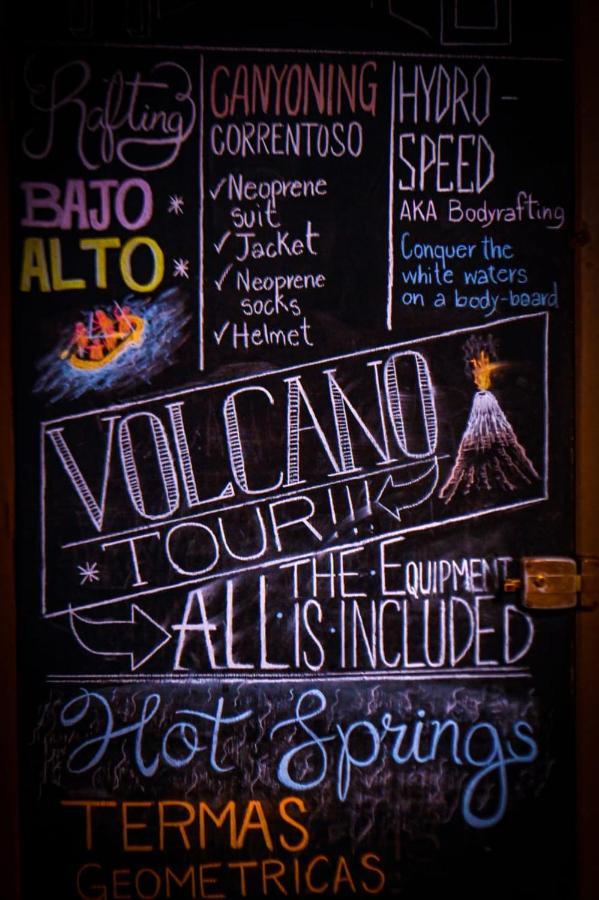 Rafting
BAJO *
ALTO *
CANYONING
CORRENTOSO
✓Neoprene
suit
✓Jacket
✓Neoprene
socks
✓Helmet
HYDRO-
SPEED
AKA Bodyrafting
Conquer the
white waters
on a body-board
VOLCANO
* TOUR!!!
ALL·THE·EQUIPMENT
IS·INCLUDED
Hot Springs
TERMAS
GEOMETRICAS